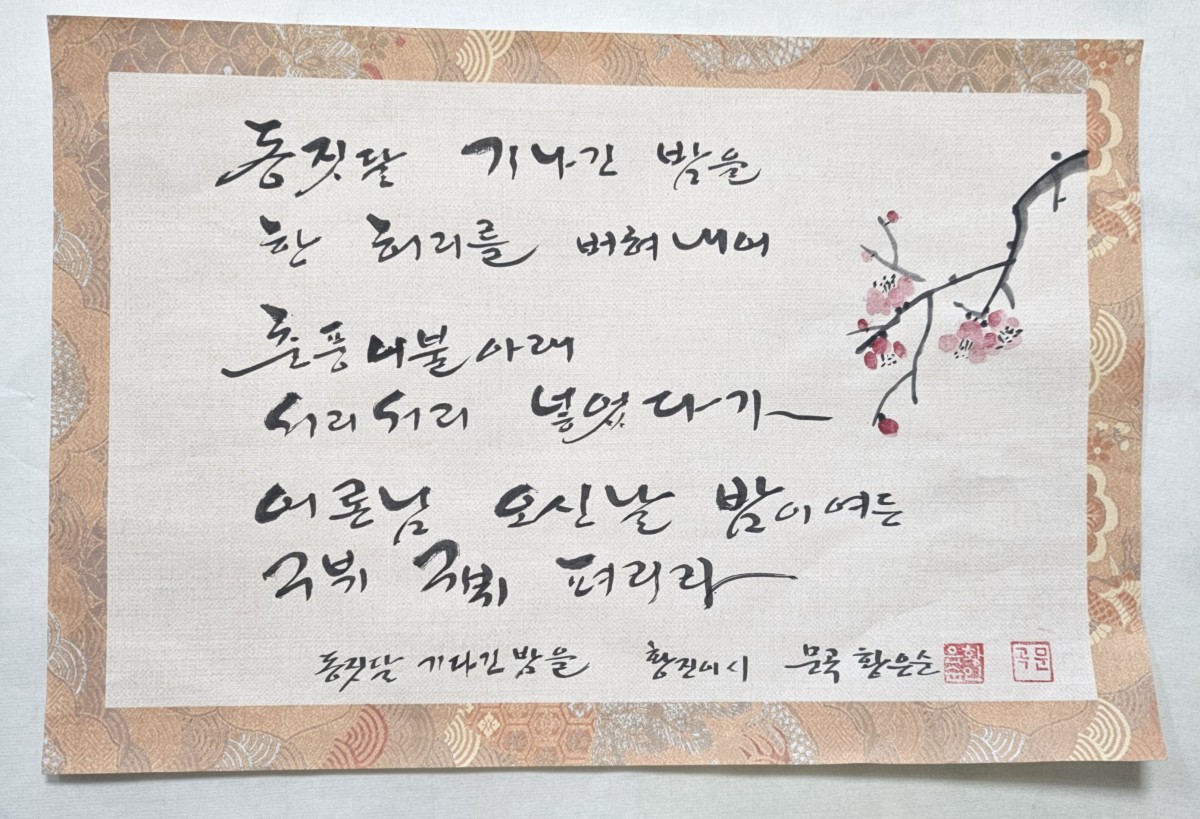 동짓달 기나긴 밤을
한 허리를 버혀내어
춘풍이불아래
서리서리 넣었다가
어론님 오신날 밤이여든
구뷔 구뷔 펴리라
동짓달 기나긴밤을 황진이시 문곡 황은순
문곡